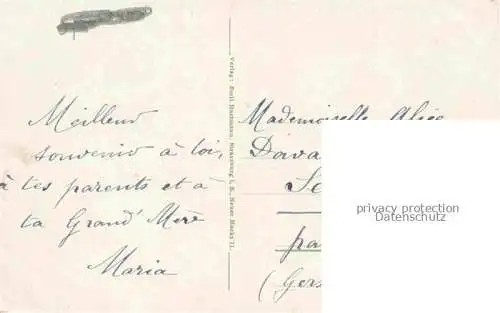 Meilleur
souvenir à toi,
à tes parents et à
ta Grand' Mère
Maria
Verlag: Emil Hartmann, Strassburg i. E., Neuer Markt 11.
Mademoiselle Alice
privacy protection
Datenschutz
(Gers